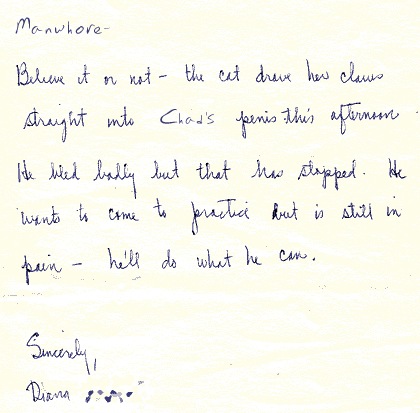 Manwhore-
Believe it or not - the cat drove her claws
straight into Chad's penis this afternoon.
He bled badly but that has stopped. He
wants to come to practice but is still in
pain - he'll do what he can.
Sincerely,
Diana